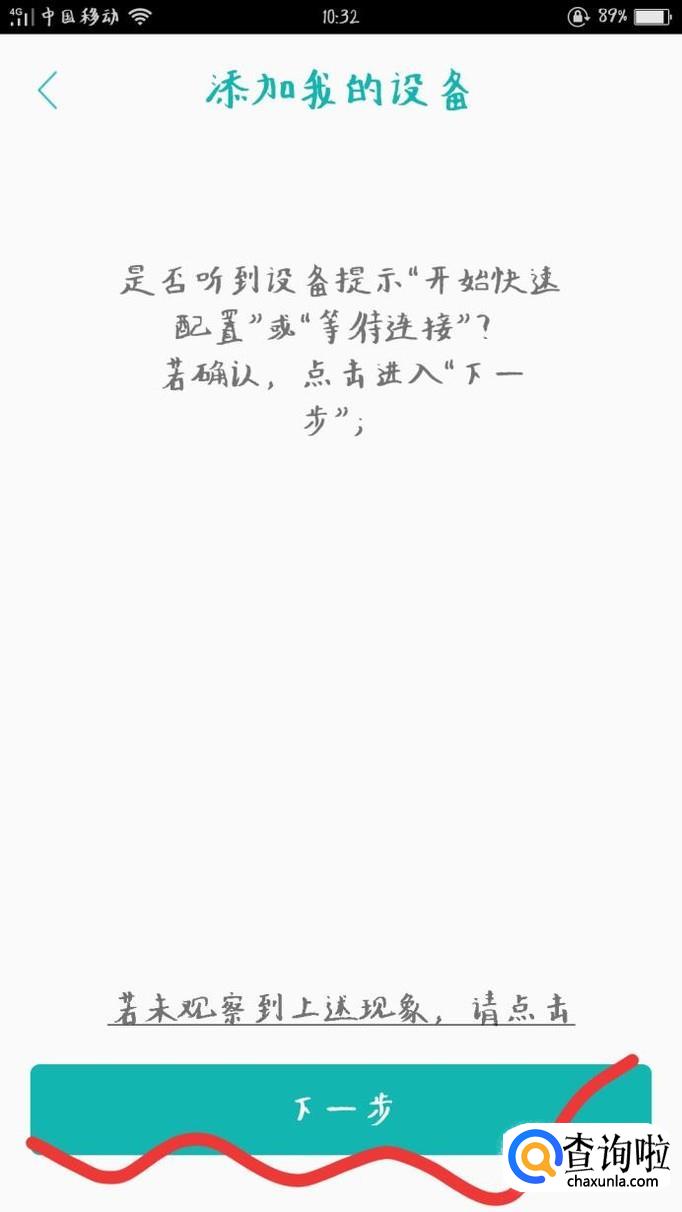 4G 中国移动 10:32 89%
添加我的设备
是否听到设备提示“开始快速
配置”或“等待连接”？
若确认，点击进入“下一
步”；
若未观察到上述现象，请点击
下一步
查询啦
chaxunla.com